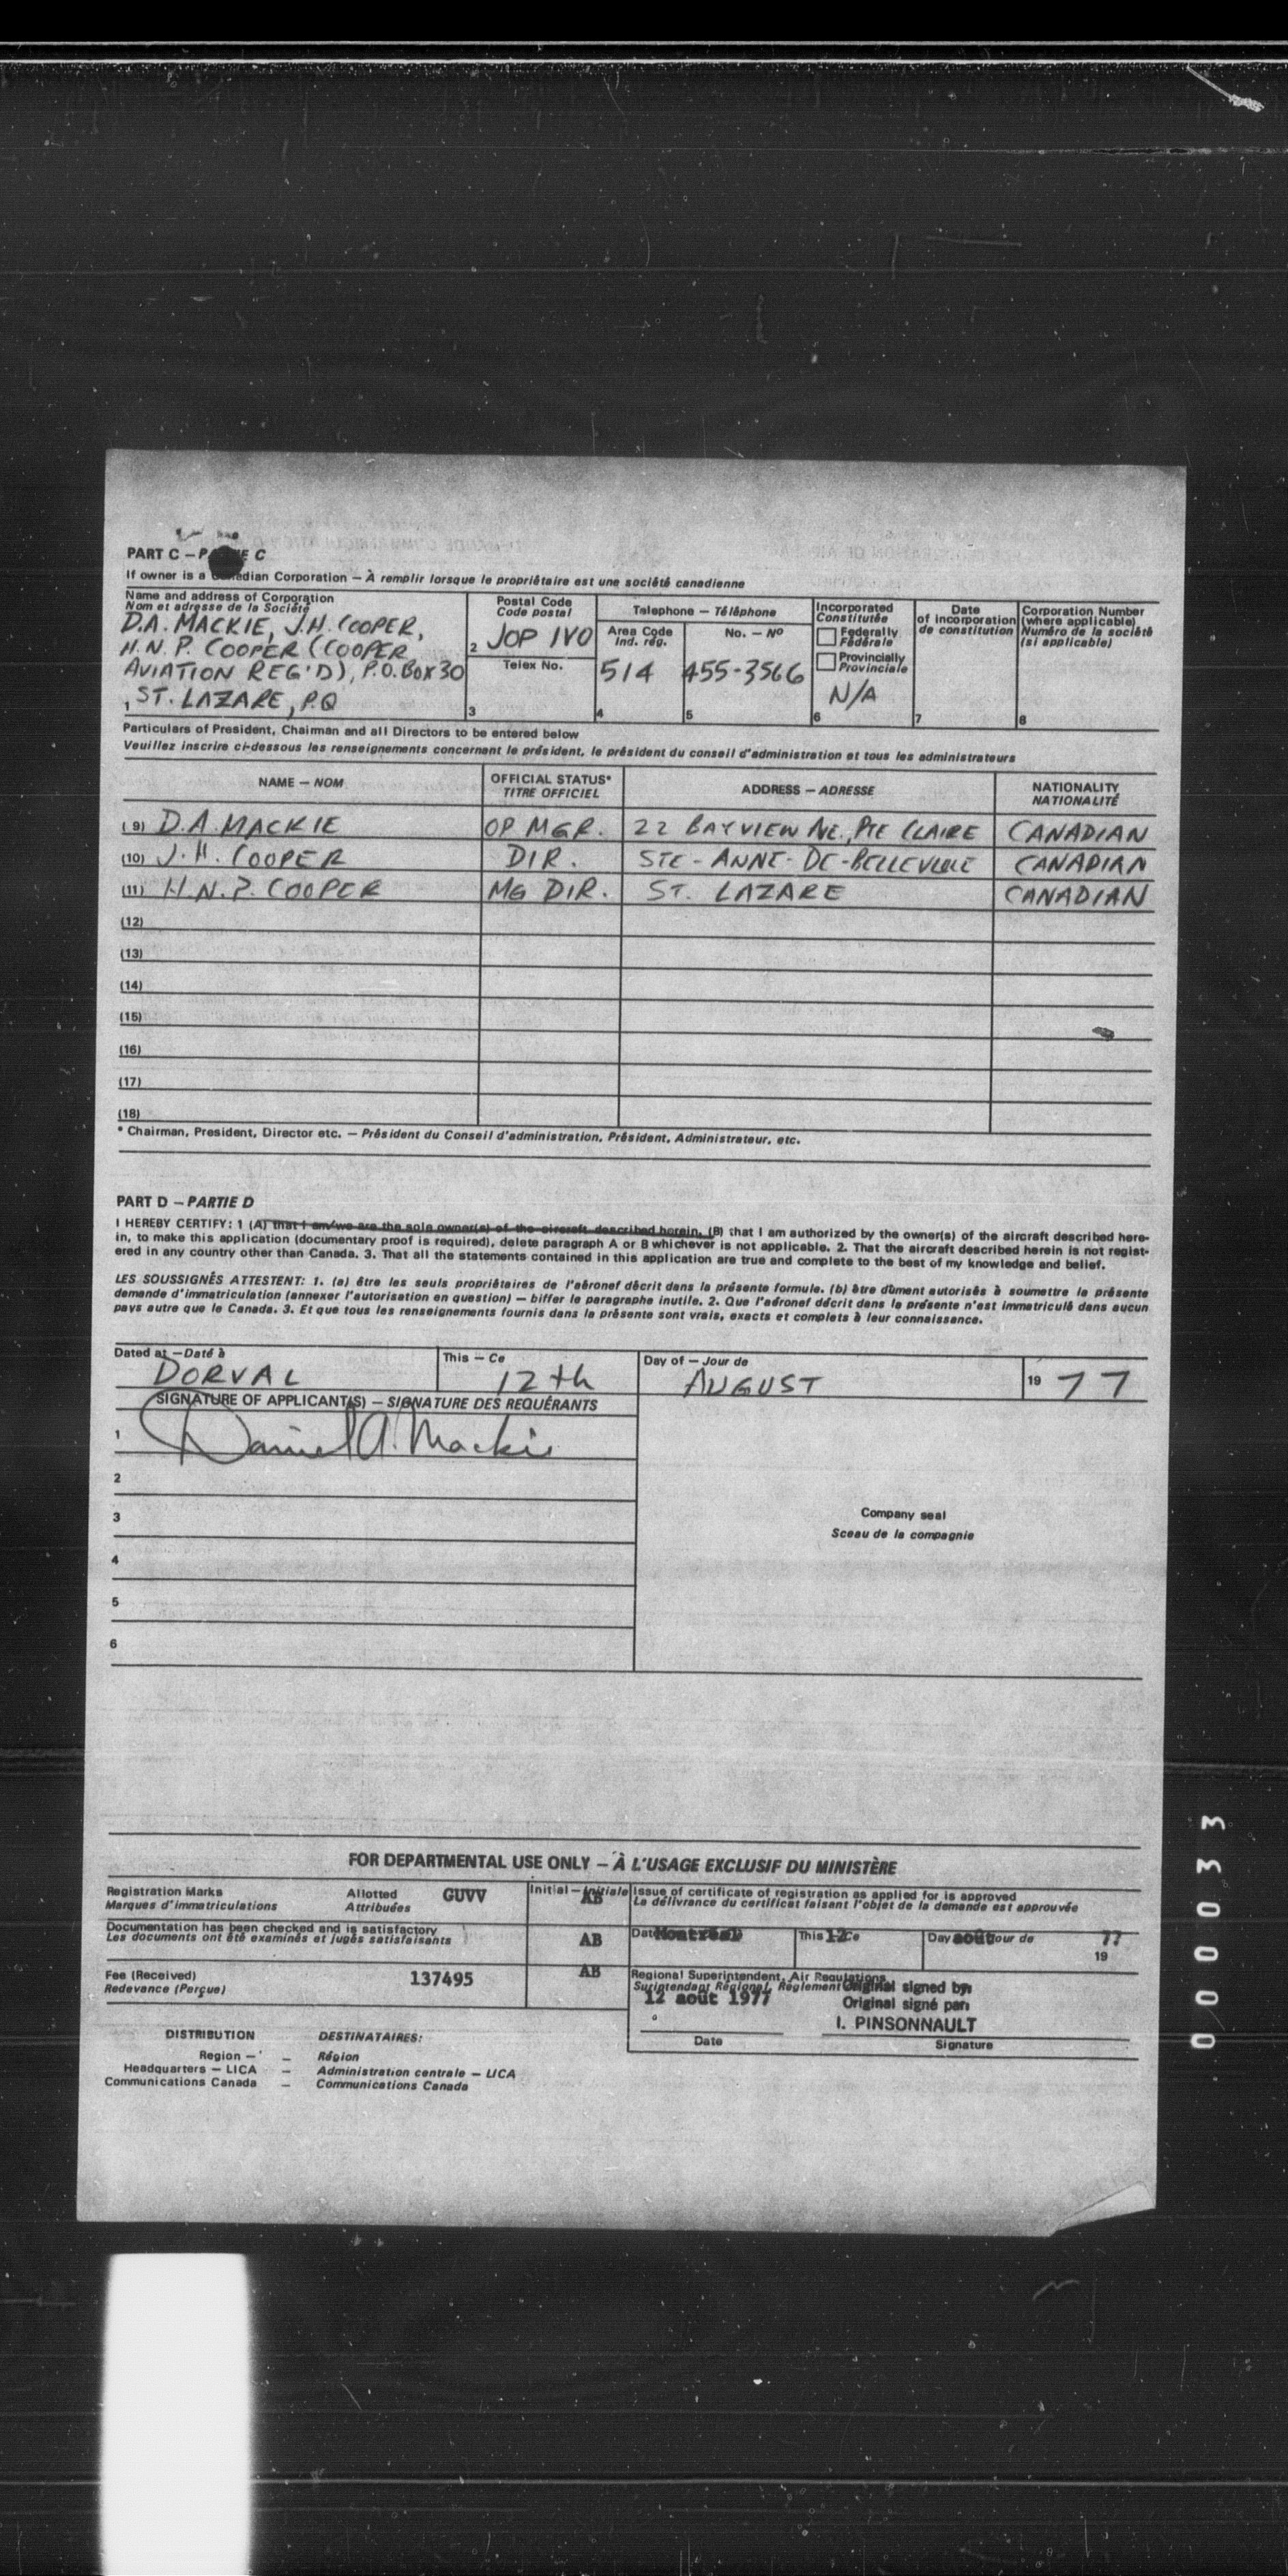 PART C – PARTIE C
If owner is a Canadian Corporation – À remplir lorsque le propriétaire est une société canadienne
Name and address of Corporation
Nom et adresse de la Société
D.A. MACKIE, J.H. COOPER,
H.N.P. COOPER (COOPER
AVIATION REG'D), P.O. BOX 30
1 , ST. LAZARE, P.Q
Postal Code
Code postal
2 JOP 1VO
Telex No.
3
Telephone – Téléphone
Area Code
Ind. rég.
514
4
No. – Nº
455-3566
5
Incorporated
Constituée
Federally
Fédérale
Provincially
Provinciale
N/A
6
Date
of incorporation
de constitution
7
Corporation Number
(where applicable)
Numéro de la société
(si applicable)
8
Particulars of President, Chairman and all Directors to be entered below
Veuillez inscrire ci-dessous les renseignements concernant le président, le président du conseil d'administration et tous les administrateurs
NAME – NOM OFFICIAL STATUS* TITRE OFFICIEL ADDRESS – ADRESSE NATIONALITY NATIONALITÉ
(9) D.A. MACKIE OP MGR. 22 BAYVIEW AVE., PTE CLAIRE CANADIAN
(10) J.H. COOPER DIR. STE-ANNE-DE-BELLEVUE CANADIAN
(11) H.N.P. COOPER MG DIR. ST. LAZARE CANADIAN
(12)
(13)
(14)
(15)
(16)
(17)
(18)
* Chairman, President, Director etc. – Président du Conseil d'administration, Président, Administrateur, etc.
PART D – PARTIE D
I HEREBY CERTIFY: 1 (A) that I am/we are the sole owner(s) of the aircraft described herein, (B) that I am authorized by the owner(s) of the aircraft described here-
in, to make this application (documentary proof is required), delete paragraph A or B whichever is not applicable. 2. That the aircraft described herein is not regist-
ered in any country other than Canada. 3. That all the statements contained in this application are true and complete to the best of my knowledge and belief.
LES SOUSSIGNÉS ATTESTENT: 1. (a) être les seuls propriétaires de l'aéronef décrit dans la présente formule. (b) être dûment autorisés à soumettre la présente
demande d'immatriculation (annexer l'autorisation en question) – biffer le paragraphe inutile. 2. Que l'aéronef décrit dans la présente n'est immatriculé dans aucun
pays autre que le Canada. 3. Et que tous les renseignements fournis dans la présente sont vrais, exacts et complets à leur connaissance.
Dated at – Daté à This – Ce Day of – Jour de
DORVAL 12th AUGUST 19 77
SIGNATURE OF APPLICANT(S) – SIGNATURE DES REQUÉRANTS
1 Daniel A. Mackie
2
3
4
5
6
Company seal
Sceau de la compagnie
FOR DEPARTMENTAL USE ONLY – À L'USAGE EXCLUSIF DU MINISTÈRE
Registration Marks Allotted GUVV
Marques d'immatriculations Attribuées
Initial – Initiale
AB
Issue of certificate of registration as applied for is approved
La délivrance du certificat faisant l'objet de la demande est approuvée
Documentation has been checked and is satisfactory
Les documents ont été examinés et jugés satisfaisants
AB
Montréal This 12 Ce Day août Jour de 77
19
Fee (Received) 137495 AB
Redevance (Perçue)
Regional Superintendent, Air Regulations
Surintendant Régional, Règlement
12 août 1977
Original signed by:
Original signé par:
I. PINSONNAULT
Date Signature
DISTRIBUTION DESTINATAIRES:
Region – – Région
Headquarters – LICA – Administration centrale – LICA
Communications Canada – Communications Canada
000033